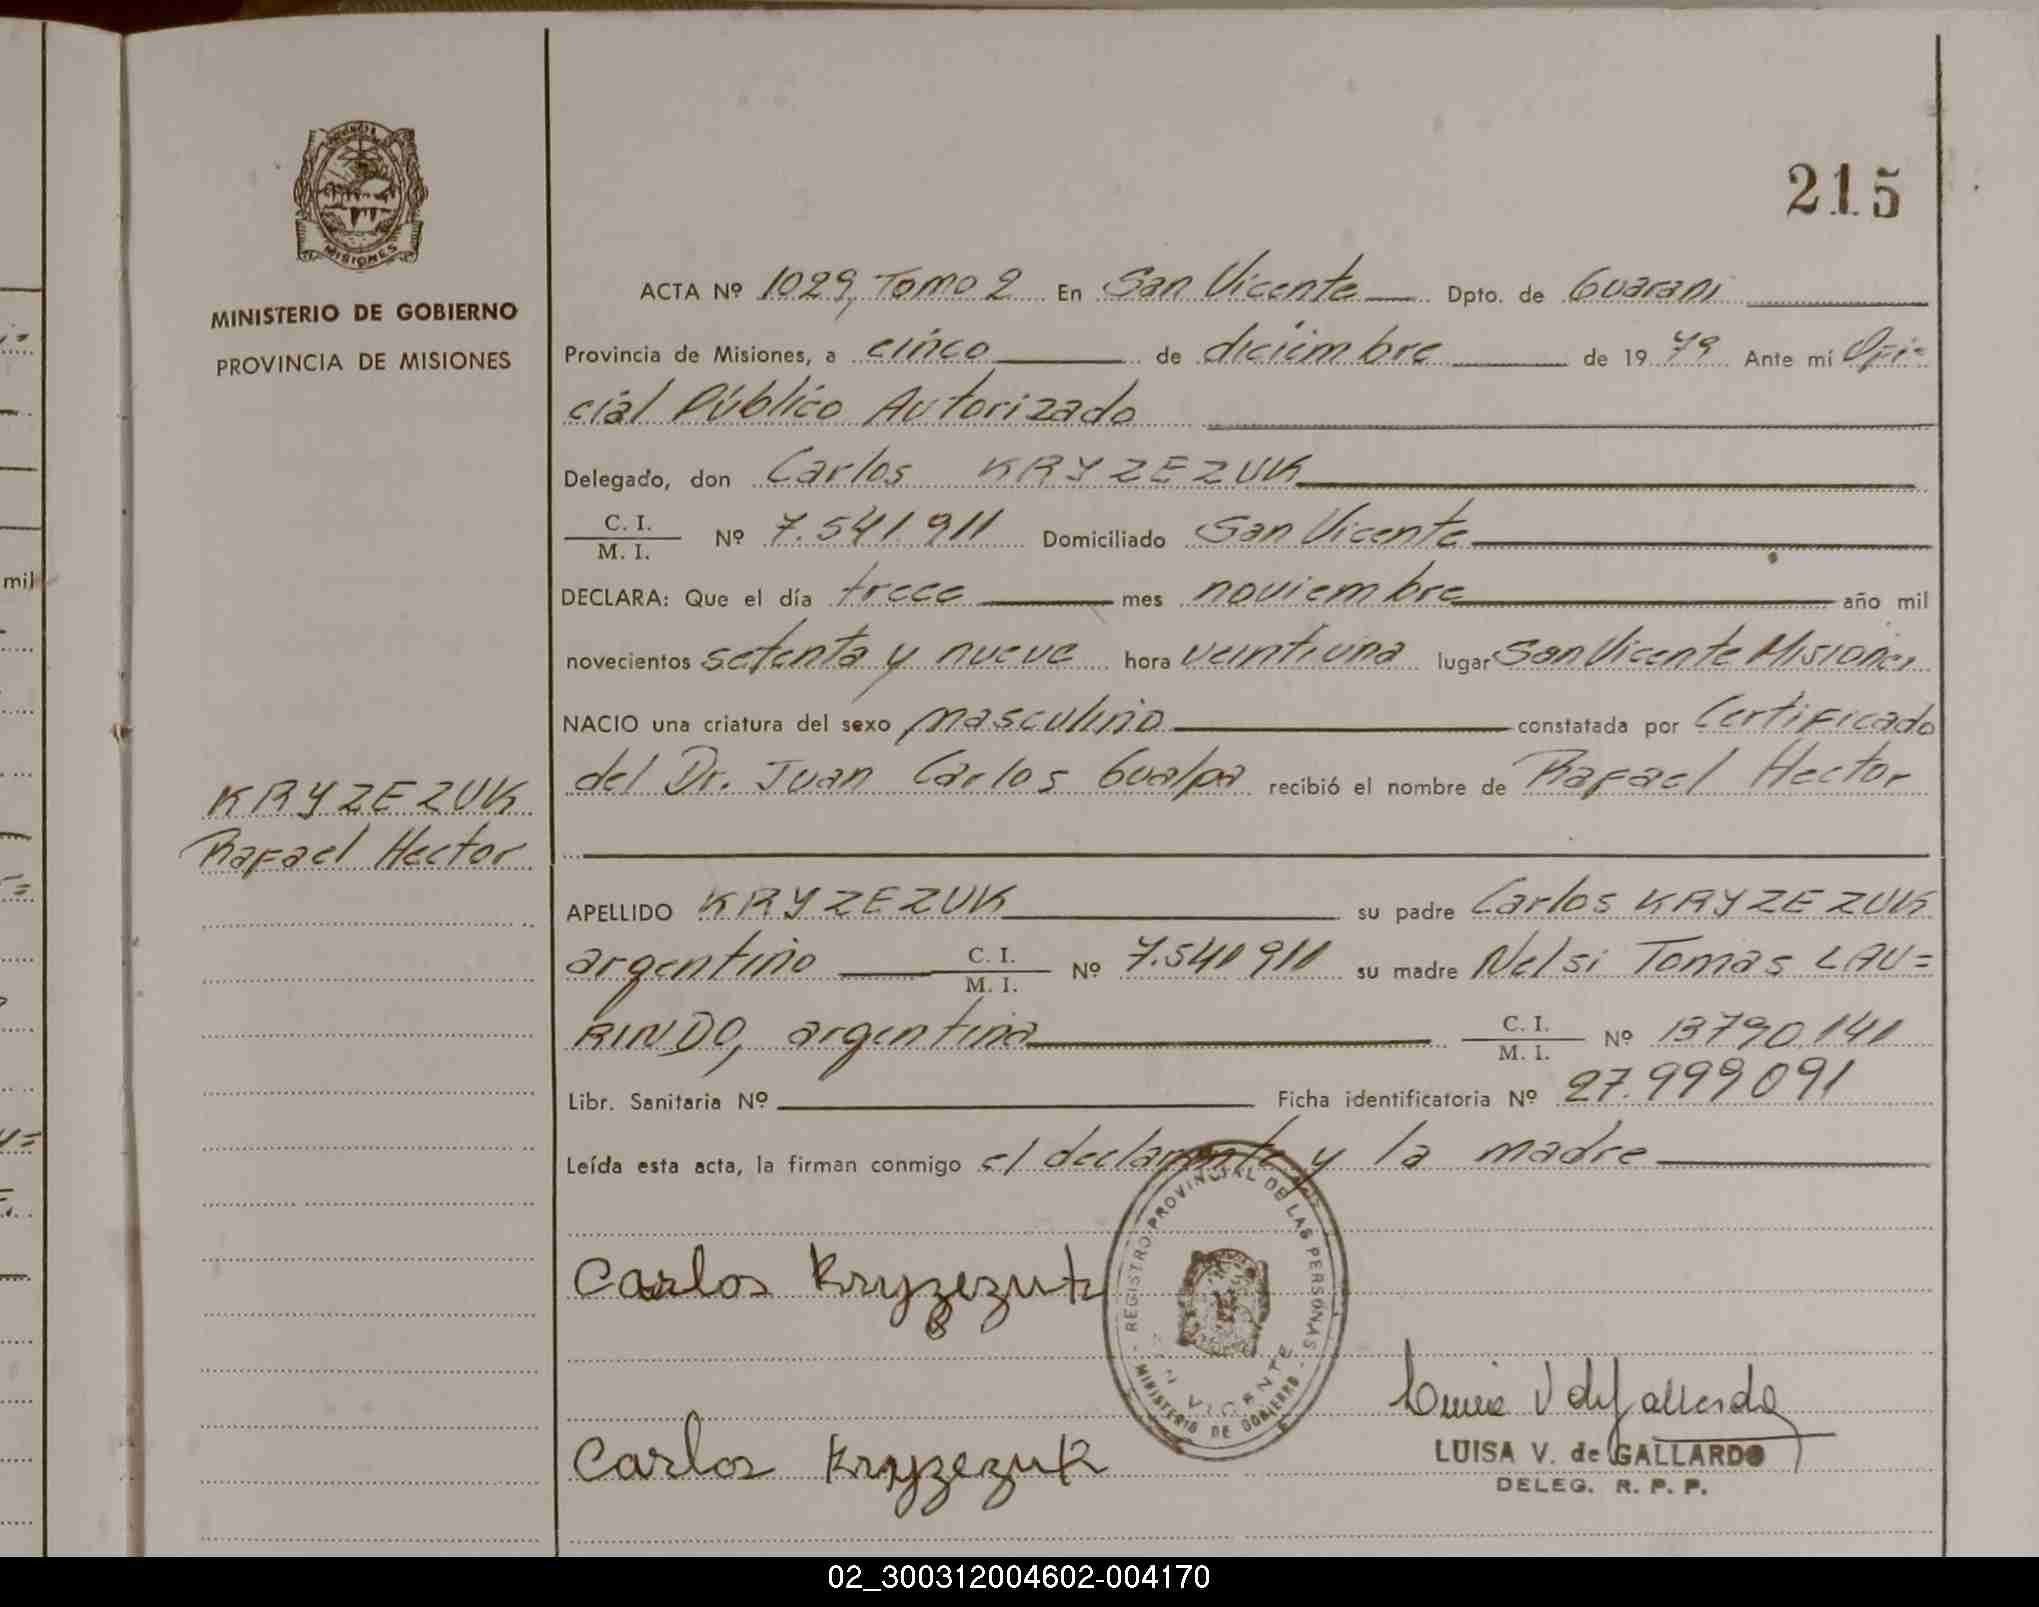 215
MINISTERIO DE GOBIERNO
PROVINCIA DE MISIONES
ACTA Nº 1029, Tomo 2 En San Vicente Dpto. de Guarani
Provincia de Misiones, a cinco de diciembre de 19 79 Ante mí Ofi-
cial Público Autorizado
Delegado, don Carlos KRYZEZUK
C. I.
M. I. Nº 7.541.911 Domiciliado San Vicente
DECLARA: Que el día trece mes noviembre año mil
novecientos setenta y nueve hora veintiuna lugar San Vicente Misiones
NACIO una criatura del sexo masculino constatada por Certificado
del Dr. Juan Carlos Gualpa recibió el nombre de Rafael Hector
KRYZEZUK
Rafael Hector
APELLIDO KRYZEZUK su padre Carlos KRYZEZUK
argentino C. I.
M. I. Nº 7.541911 su madre Nelsi Tomas LAU=
RINDO, argentina C. I.
M. I. Nº 13790.141
Libr. Sanitaria Nº Ficha identificatoria Nº 27.999091
Leída esta acta, la firman conmigo el declarante y la madre
REGISTRO PROVINCIAL DE LAS PERSONAS
MINISTERIO DE GOBIERNO
VICENTE
Carlos Kryzezuk
Carlos Kryzezuk
LUISA V. de GALLARDO
DELEG. R. P. P.
MISIONES
mil
02_300312004602-004170